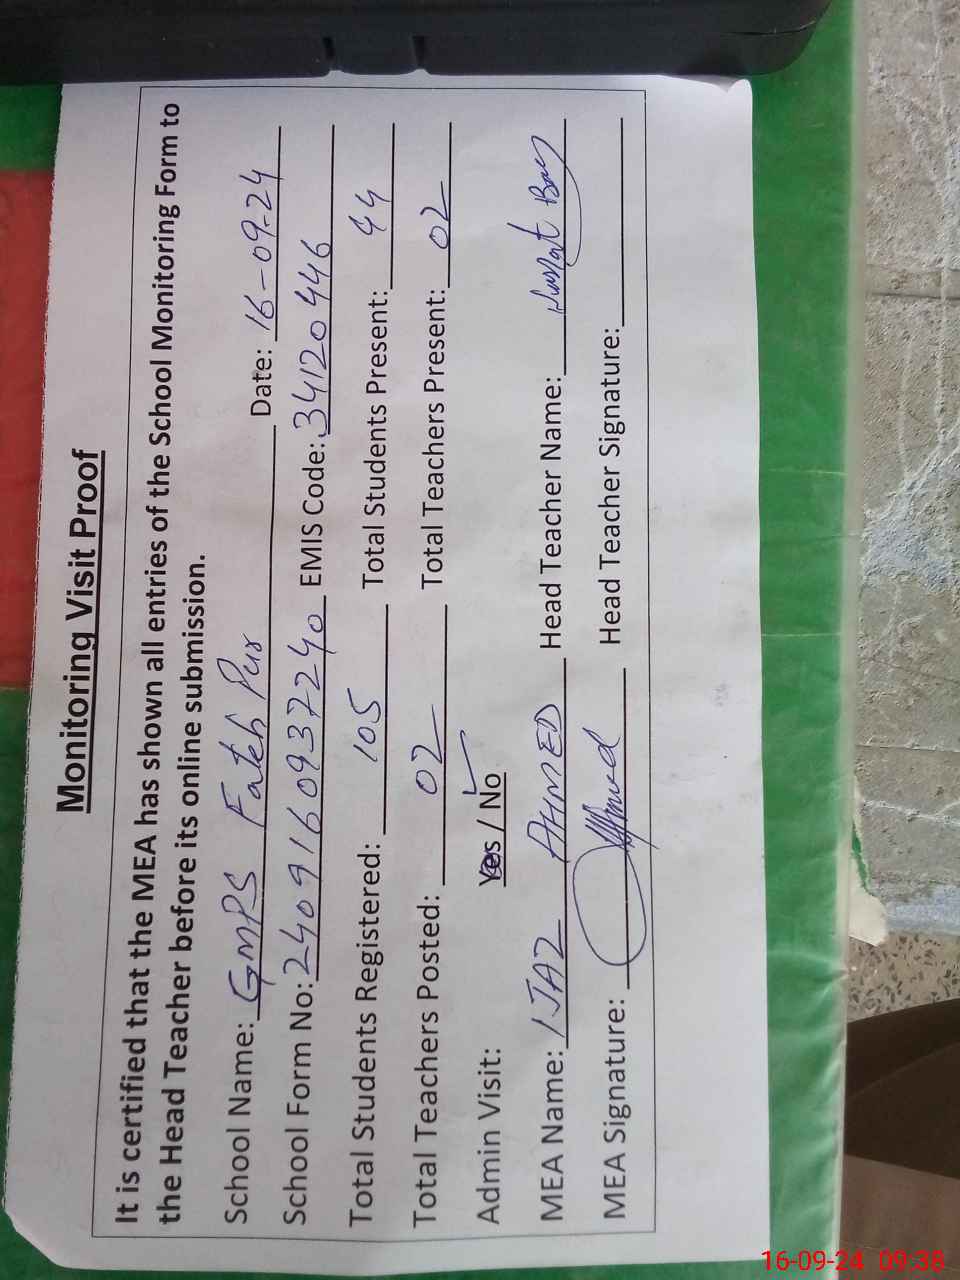 Monitoring Visit Proof
It is certified that the MEA has shown all entries of the School Monitoring Form to
the Head Teacher before its online submission.
School Name: GMPS Fateh Pur Date: 16-09-24
School Form No: 2409160937240 EMIS Code: 34120446
Total Students Registered: 105 Total Students Present: 44
Total Teachers Posted: 02 Total Teachers Present: 02
Admin Visit: Yes / No
MEA Name: IJAZ AHMED Head Teacher Name:
MEA Signature: Head Teacher Signature:
16-09-24 09:38